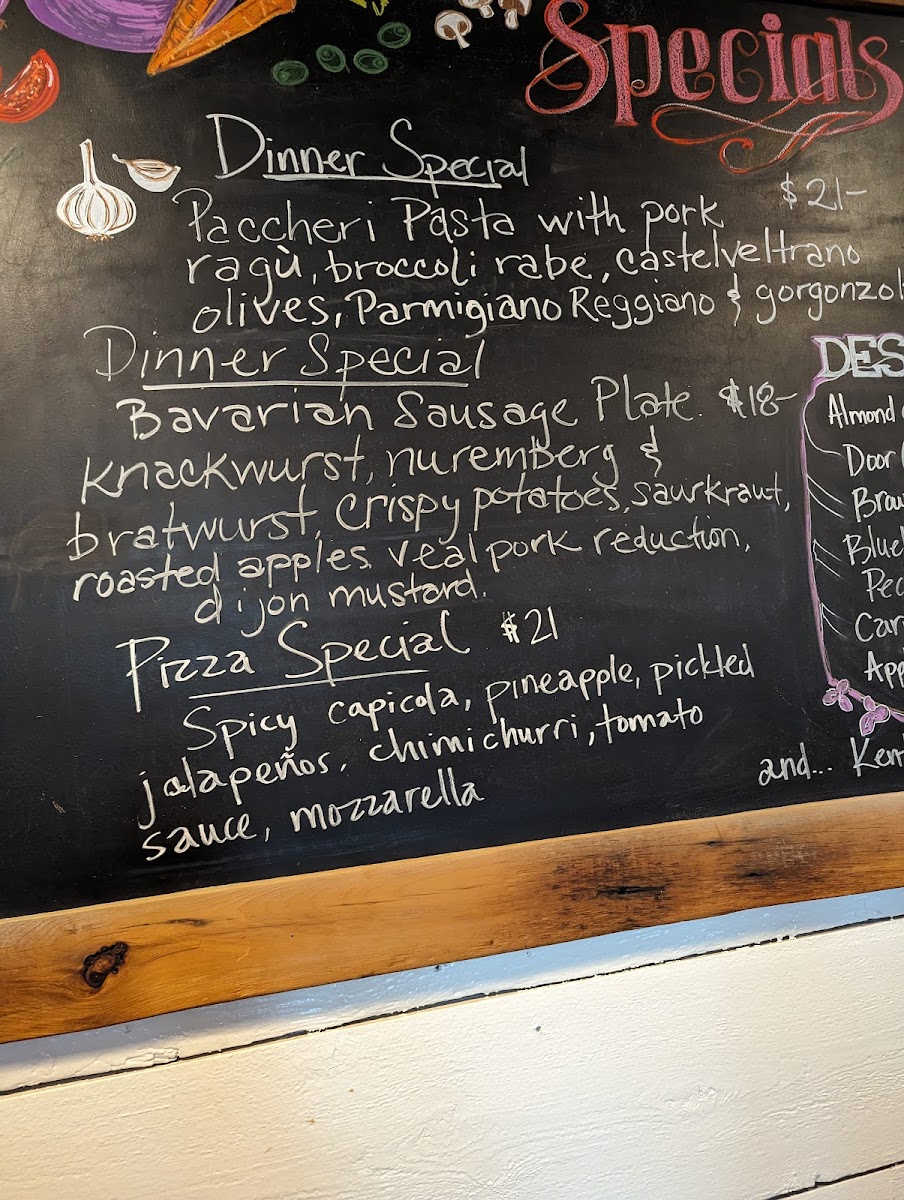 Specials
Dinner Special
$21-
Paccheri Pasta with pork
ragù, broccoli rabe, castelveltrano
olives, Parmigiano Reggiano & gorgonzol
Dinner Special
Bavarian Sausage Plate. $18-
Knackwurst, nuremberg &
bratwurst, crispy potatoes, saurkraut,
roasted apples, veal pork reduction,
dijon mustard.
Pizza Special $21
Spicy capicola, pineapple, pickled
jalapeños, chimichurri, tomato
sauce, mozzarella
DES
Almond
Door
Brow
Blue
Pec
Car
App
and... Kent